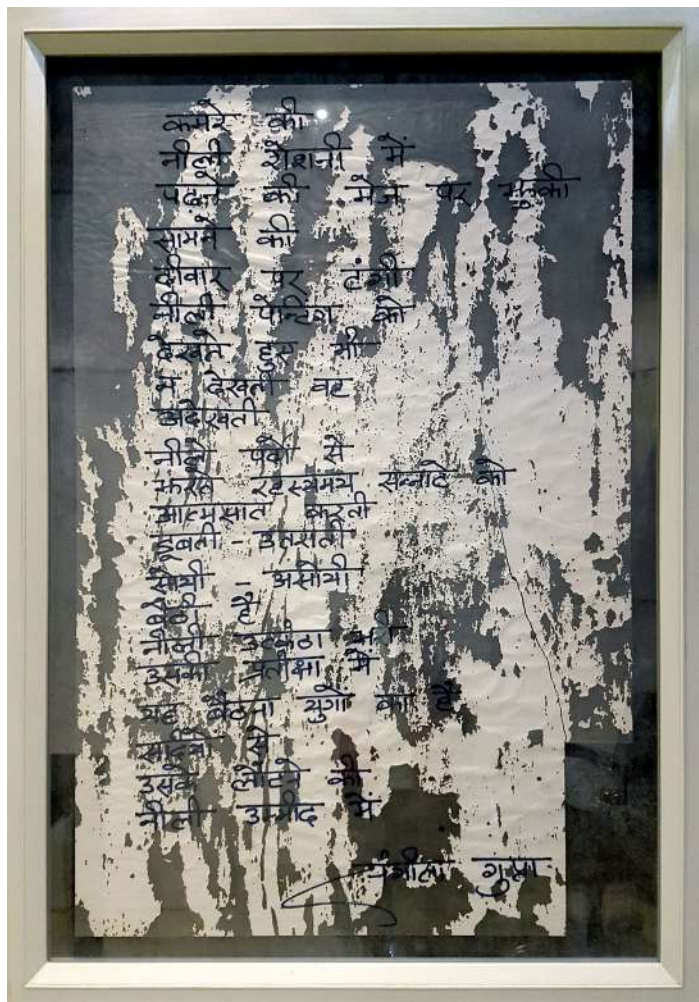 कमरे की
नीली रोशनी में
पढ़ने की मेज पर झुकी
सामने की
दीवार पर टंगी
नीली पेन्टिंग को
देखते हुए भी
न देखती वह
अदेखती
नीले पंखों से
झरते रहस्यमय सन्नाटे को
आत्मसात करती
डूबती - उतराती
सोयी असोयी
है।
नीली उत्कंठा भरी
उसकी प्रतीक्षा में
यह बैठना युगों का है
उसके लौटने की
नीली उम्मीद में
गुप्ता